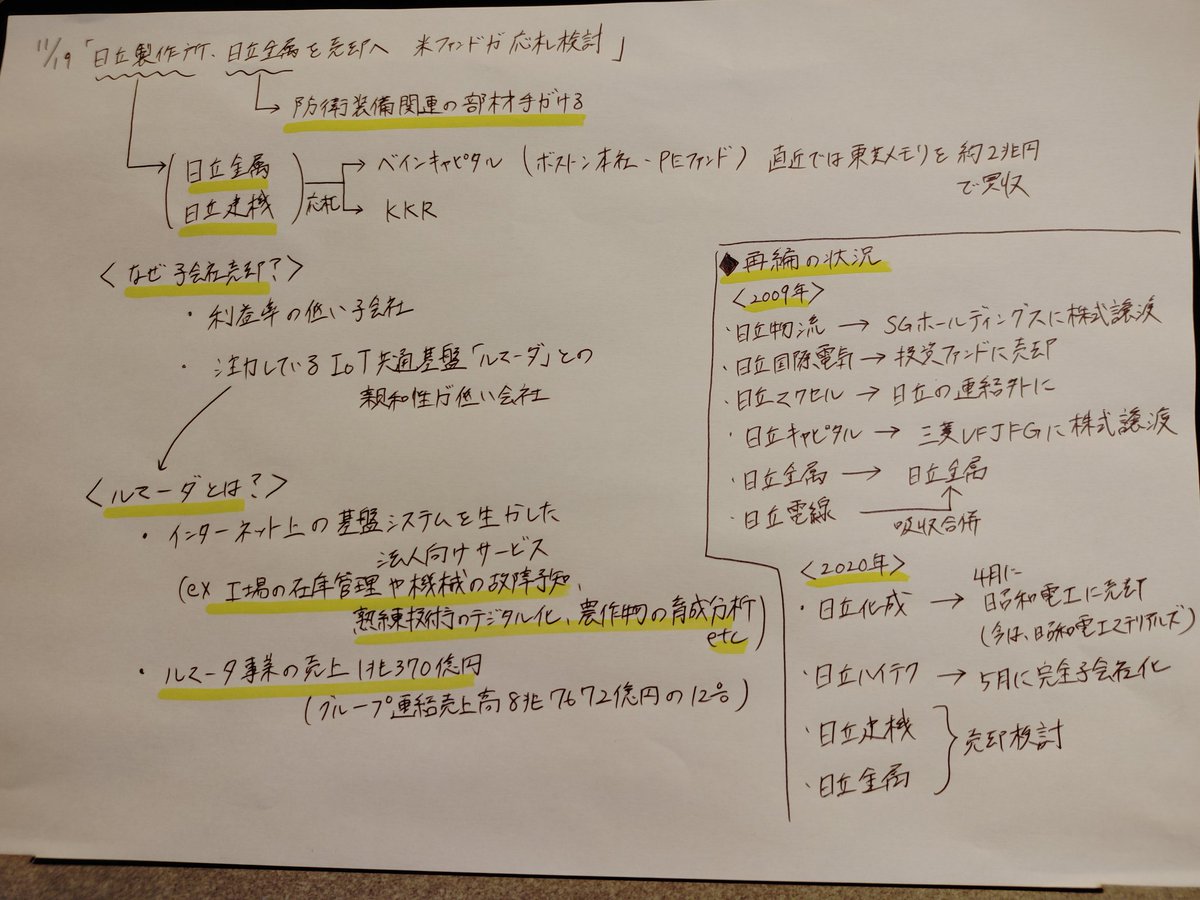 11/19「日立製作所、日立金属を売却へ 米ファンドが応札検討」
→ 防衛装備関連の部材手がける
日立金属
日立建機
応札
→ ベインキャピタル（ボストン本社・PEファンド） 直近では東芝メモリを約2兆円
で買収
→ KKR
＜なぜ子会社売却？＞
・利益率の低い子会社
・注力しているIoT共通基盤「ルマーダ」との
親和性が低い会社
＜ルマーダとは？＞
・インターネット上の基盤システムを生かした
法人向けサービス
(ex 工場の在庫管理や機械の故障予知、
熟練技術のデジタル化、農作物の育成分析
etc)
・ルマーダ事業の売上 1兆370億円
(グループ連結売上高8兆7672億円の12%)
◆再編の状況
＜2009年＞
・日立物流 → SGホールディングスに株式譲渡
・日立国際電気 → 投資ファンドに売却
・日立マクセル → 日立の連結外に
・日立キャピタル → 三菱UFJFGに株式譲渡
・日立金属 → 日立金属
・日立電線
吸収合併
＜2020年＞
・日立化成 → 4月に
昭和電工に売却
(今は、昭和電工マテリアルズ)
・日立ハイテク → 5月に完全子会社化
・日立建機
・日立金属
売却検討